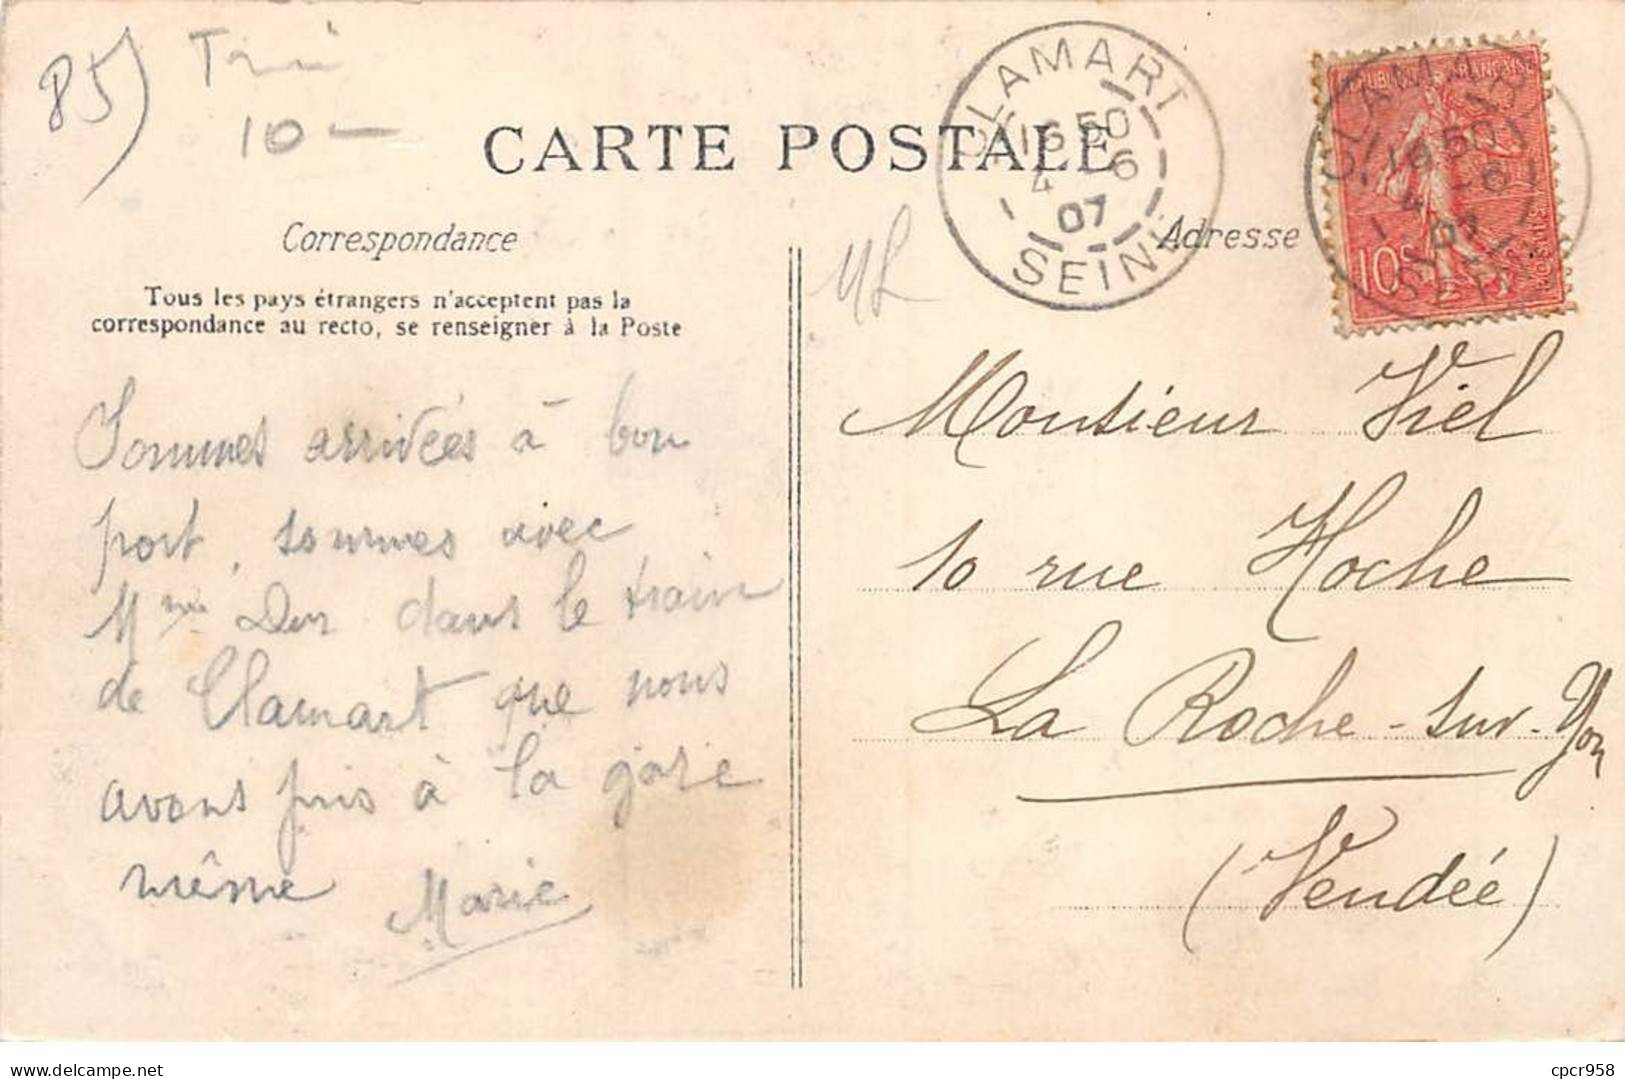 85)
10 —
CARTE POSTALE
CLAMART
16 50
4 - 6
07
SEINE
CLAMART
16 50
4 - 6
07
SEINE
10c
POSTES
Correspondance
Adresse
Tous les pays étrangers n'acceptent pas la
correspondance au recto, se renseigner à la Poste
Sommes arrivées à bon
port, sommes avec
Mme Dur dans le train
de Clamart que nous
avons pris à la gare
même
Marie
Monsieur Viel
10 rue Hoche
La Roche-sur-Yon
(Vendée)
cpcr958